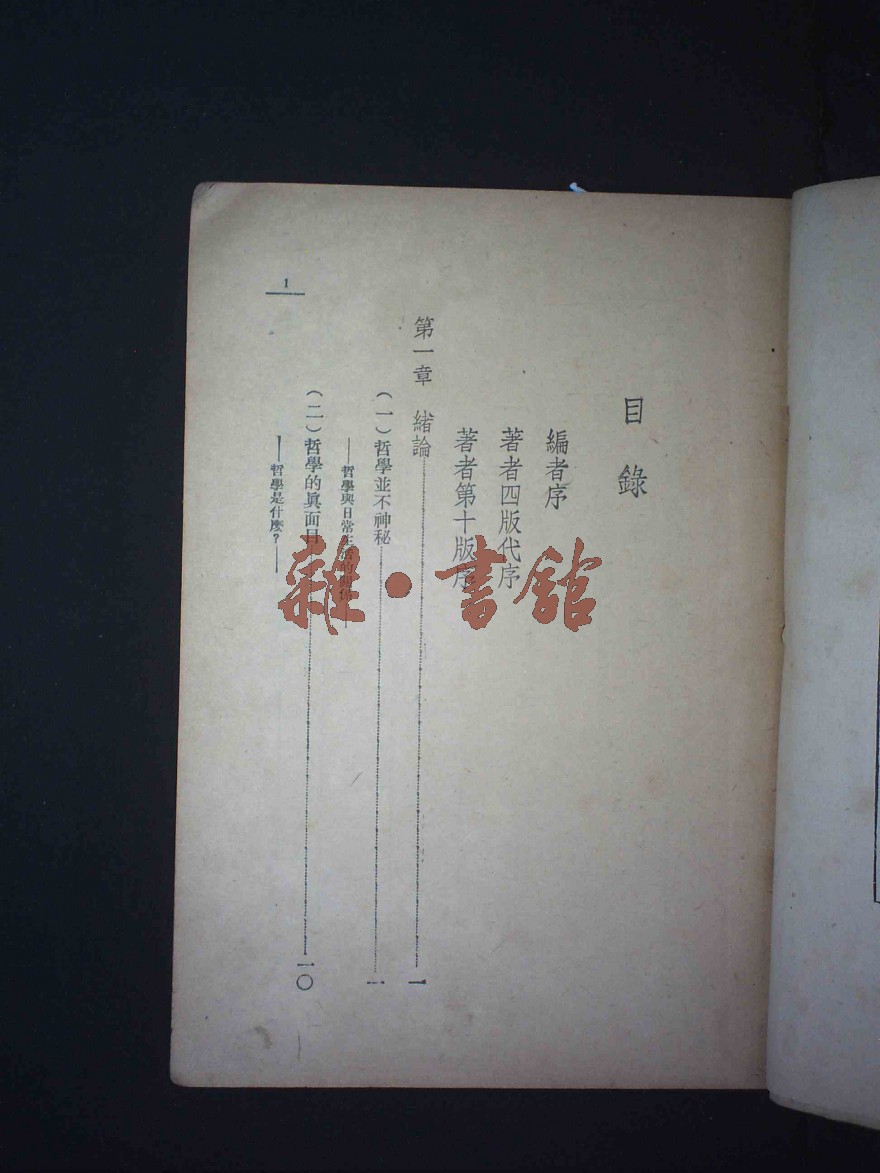 目錄
編者序
著者四版代序
著者第十版序
第一章 緒論 一
(一)哲學並不神秘 一
——哲學與日常生活的關係——
(二)哲學的眞面目 一〇
——哲學是什麼?——
1
雜·書館